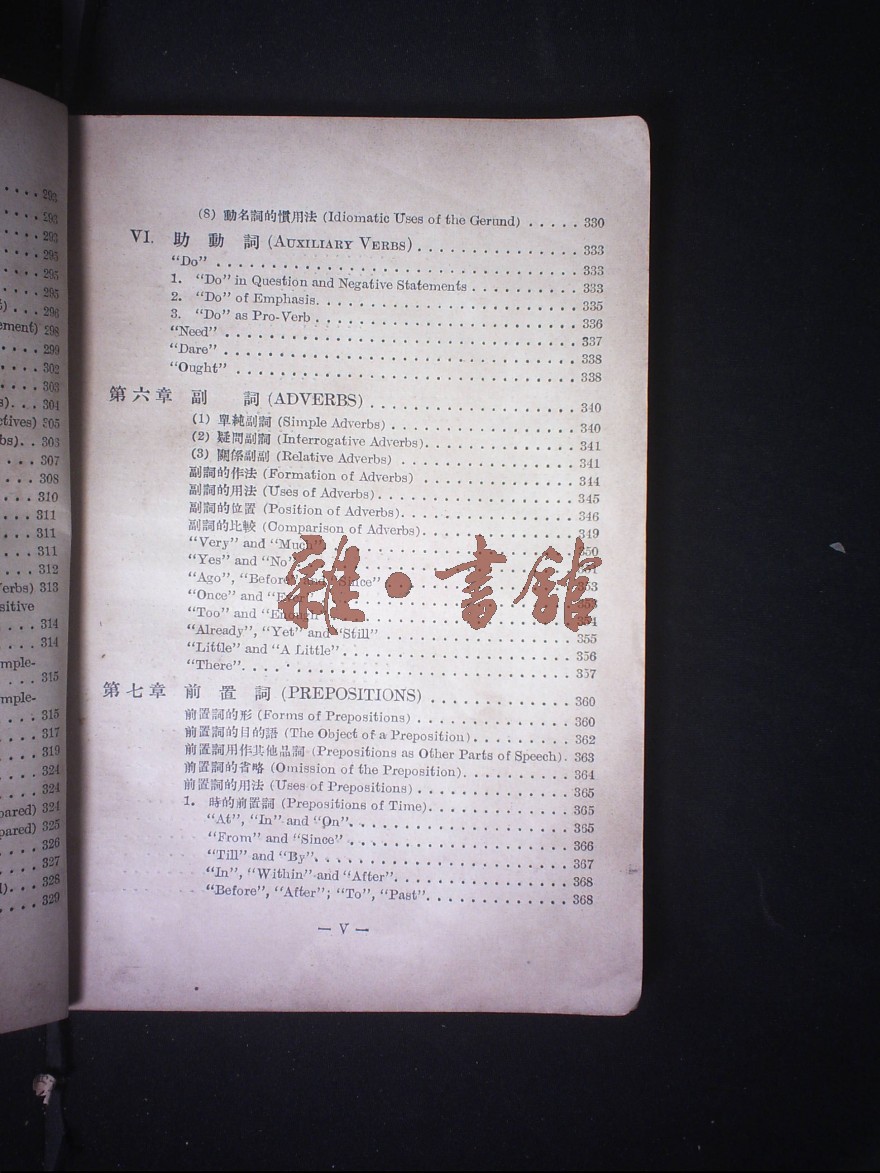 293
293
293
295
295
295
) . . . 296
ement) 298
299
302
303
s). . . 304
ctives) 305
bs). . 303
307
308
310
311
311
311
312
erbs) 313
sitive
314
314
mple-
315
mple-
315
317
319
324
324
pared) 324
pared) 325
326
327
). . . 328
329
(8) 動名詞的慣用法 (Idiomatic Uses of the Gerund) . . . . . 330
VI. 助動詞 (AUXILIARY VERBS) . . . . . 333
“Do” . . . . . 333
1. “Do” in Question and Negative Statements . . . . . 333
2. “Do” of Emphasis. . . . . 335
3. “Do” as Pro-Verb . . . . . 336
“Need” . . . . . 337
“Dare” . . . . . 338
“Ought” . . . . . 338
第六章 副詞 (ADVERBS) . . . . . 340
(1) 單純副詞 (Simple Adverbs) . . . . . 340
(2) 疑問副詞 (Interrogative Adverbs). . . . . 341
(3) 關係副副 (Relative Adverbs) . . . . . 341
副詞的作法 (Formation of Adverbs) . . . . . 344
副詞的用法 (Uses of Adverbs) . . . . . 345
副詞的位置 (Position of Adverbs). . . . . 346
副詞的比較 (Comparison of Adverbs). . . . . 349
“Very” and “Much” . . . . . 350
“Yes” and “No” . . . . . 351
“Ago”, “Before” and “Since” . . . . . 353
“Once” and “Ever” . . . . . 353
“Too” and “Enough” . . . . . 354
“Already”, “Yet” and “Still” . . . . . 355
“Little” and “A Little” . . . . . 356
“There”. . . . . 357
雜·書館
第七章 前置詞 (PREPOSITIONS) . . . . . 360
前置詞的形 (Forms of Prepositions) . . . . . 360
前置詞的目的語 (The Object of a Preposition) . . . . . 362
前置詞用作其他品詞 (Prepositions as Other Parts of Speech). 363
前置詞的省略 (Omission of the Preposition). . . . . 364
前置詞的用法 (Uses of Prepositions) . . . . . 365
1. 時的前置詞 (Prepositions of Time). . . . . 365
“At”, “In” and “On”. . . . . 365
“From” and “Since” . . . . . 366
“Till” and “By”. . . . . 367
“In”, “Within” and “After”. . . . . 368
“Before”, “After”; “To”, “Past”. . . . . 368
— V —